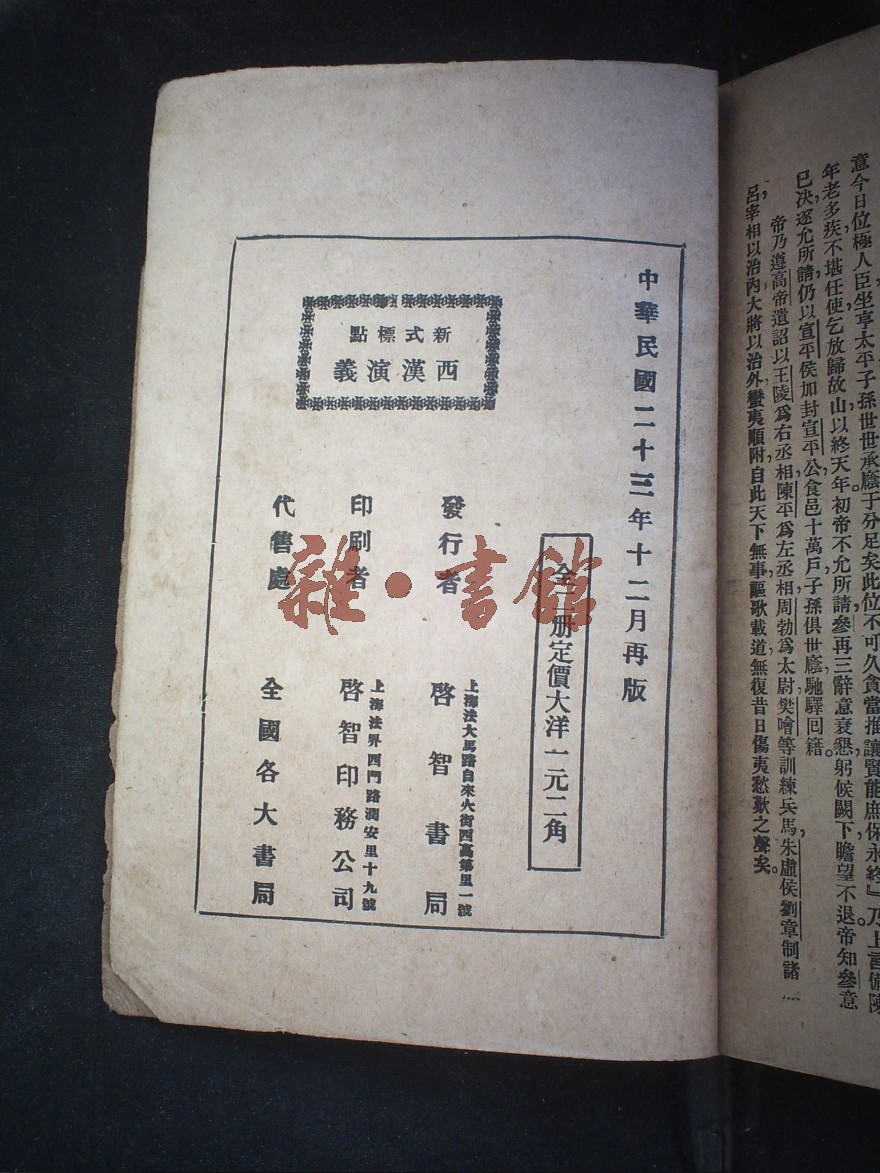 意今日位極人臣坐享太平子孫世世承廕于分足矣此位不可久貪當推讓賢能庶保永終』乃上言備陳
年老多疾不堪任使乞放歸故山以終天年初帝不允所請參再三辭意衰懇躬候闕下瞻望不退帝知參意
已決逐允所請仍以宣平侯加封宣平公食邑十萬戶子孫俱世廕馳驛回籍。
帝乃遵高帝遺詔以王陵爲右丞相陳平爲左丞相周勃爲太尉樊噲等訓練兵馬朱虛侯劉章制諸
呂宰相以治內大將以治外蠻夷順附自此天下無事謳歌載道無復昔日傷夷愁歎之聲矣。
中華民國二十三年十二月再版
全 册定價大洋一元二角
新式標點
西漢演義
發行者
上海法大馬路自來火街西高第里一號
啓智書局
印刷者
上海法界西門路潤安里十九號
啓智印務公司
代售處
全國各大書局
雜·書館